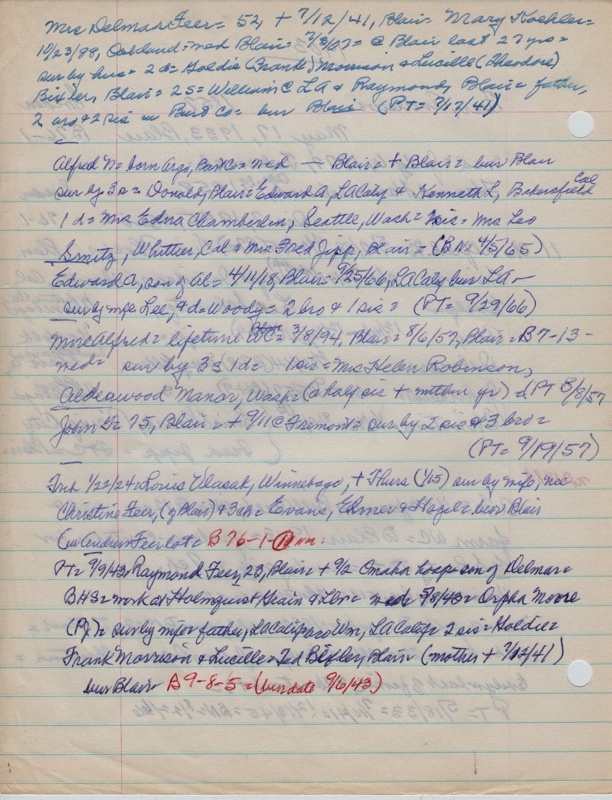 Mrs Delmar Feer = 52 + 7/12/41, Blair = Mary Koehler =
10/23/88, Oakland = med Blair = 7/3/07 = @ Blair last 27 yrs =
sur by hus = 2 d = Goldie (Frank) Morrison & Lucille (Theodore)
Bixler, Blair = 2 S = William @ LA & Raymond, Blair = father,
2 bro + 2 sis in Burt Co = bur Blair (PT = 7/17/41)
Alfred N = born Burt Co = med — Blair = + Blair = bur Blair
sur by 3 s = Donald, Blair = Edward A, LA Calif & Kenneth L, Bakersfield Cal
1 d = Mrs Edna Chamberlin, Seattle, Wash = sis = Mrs Leo
Smitz, Whittier, Cal = Mrs Fred Jipp, Blair = (BN = 4/5/65)
Edward A, son of Al = 4/11/18, Blair = 9/25/66, LA Calif bur LA =
sur by mfe Lee, & d = Woody = 2 bro & 1 sis = (PT = 9/29/66)
Mrs Alfred = lifetime 3/8/94, Blair = 8/6/57, Blair = B7-13-
med = sur by 3 s 1 d = 1 sis = Mrs Helen Robinson,
Alderwood Manor, Wash = (a half sis + mother yr) = (PT 8/8/57
John = 75, Blair = + 9/11 @ Fremont = sur by 2 sis & 3 bro =
(PT = 9/19/57)
1/22/24 = Louis Vlasak, Winnebago, + Thurs (1/15) sur by mife, nee
Christine Feer, (of Blair) & 3 ch = Evans, Elmer & Hazel = bur Blair
Feer lot = B 76-1-
PT = 9/9/43, Raymond Feer, 23, Blair + 9/2 Omaha hosp = son of Delmar =
BHS = work at Holmquist Grain & Lbr = med = 5/8/43 = Orpha Moore
= sur by mfe = father, LA Calif = Wm, LA Calif = 2 sis = Goldie =
Frank Morrison & Lucille = Ted Bixler, Blair = (mother + 7/12/41)
bur Blair B9-8-5 = (bur date 9/6/43)